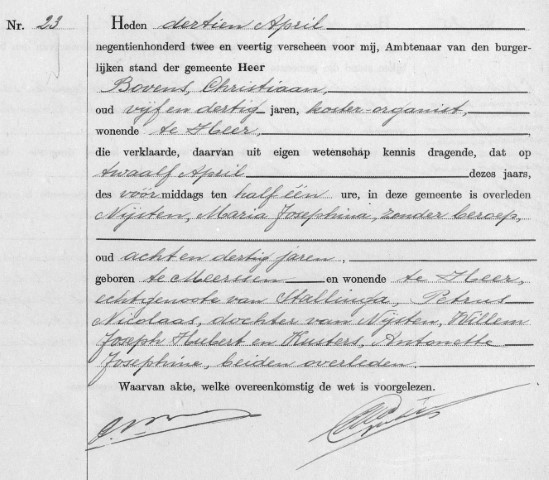 Nr. 23
Heden dertien April
negentienhonderd twee en veertig verscheen voor mij, Ambtenaar van den burger-
lijken stand der gemeente Heer
Bovens, Christiaan,
oud vijf en dertig jaren, koster-organist,
wonende te Heer,
die verklaarde, daarvan uit eigen wetenschap kennis dragende, dat op
twaalf April dezes jaars,
des vóór middags ten half één ure, in deze gemeente is overleden
Nijsten, Maria Josephina, zonder beroep,
oud acht en dertig jaren,
geboren te Meerssen en wonende te Heer,
echtgenoote van Stallinga, Petrus
Nicolaas, dochter van Nijsten, Willem
Joseph Hubert en Husters, Antonette
Josephine, beiden overleden.
Waarvan akte, welke overeenkomstig de wet is voorgelezen.